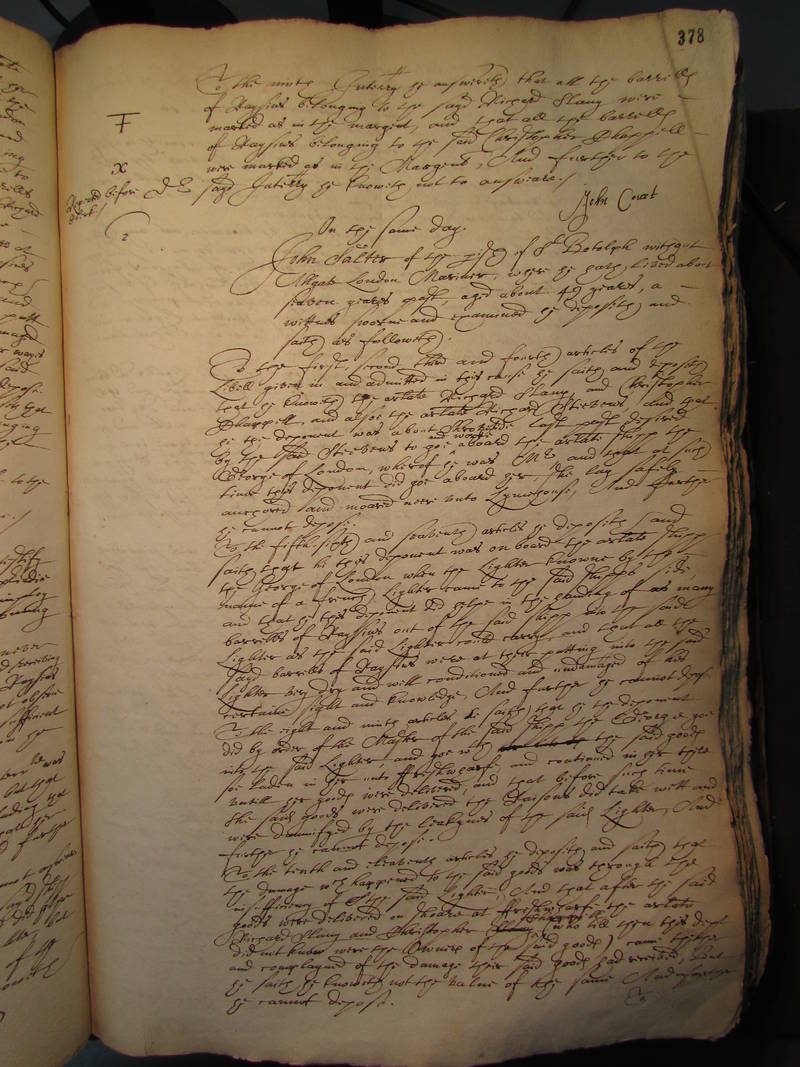 378
To the ninth Interry he answereth that all the barrells
of Raysins belonging to the sayd Richard Slany were
marked as in the margent, and that all the barrells
of Raysins belonging to the said Christopher Chappell
were marked as in the Margent, And further to the
sayd Interry he knoweth not to answeare./
x
Repeated before
John Court
2
On the same day.
John Salter of the pish of St Botolph without
Allgate London Mariner, where he hath lived about
seaven yeares past, aged about 49 yeares, a
wittnes sworne and examined he deposeth and
saith as followeth.
To the first, second, third and fourth articles of the
Libell given in and admitted in this cause he saith and deposeth
that he knoweth the arlate Richard Slany and Christopher
Chappell, and alsoe the arlate Richard Steevens And that
he the deponent was about Shrovetide last past desired
by the said Steevens to goe and worke aboard the arlate shipp the
George of London, whereof he was Mr and that at such
time this deponent did goe aboard her, she lay safely
anchored and moared neere unto Lymehouse, And further
he cannot depose.
To the fifth sixth and seaventh articles he deposeth and
saith that he this deponent was on board the arlate shipp
the George of London when the Lighter knowne by the
name of a french Lighter came to the said shipps side,
and that he this deponent did helpe in the handing of as many
barrells of Raysins out of the said shipp into the said
Lighter as the said Lighter could carry, and that all the
sayd barrells of Raysins were at their putting into the said
Lighter very dry and well conditioned and undamaged of his
certaine sight and knowledge, And further he cannot depose
To the eight and ninth articles he saith that he the deponent
did by order of the Master of the said shipp the George goe
into the said Lighter, and goe with the said goods
soe laden in her unto ffreshwharfe and continued in her there
untill the goods were delivered, and that before such time
the said goods were delivered the Raisons did take wett and
were damnifyed by the leakynes of the said Lighter, And
further he cannot depose.
To the tenth and eleaventh articles he deposeth and saith that
the damage wch happened to the said goods was through the
insufficiency of the said Lighter, And that after the said
goods were delivered on shoare at ffreshwharfe the arlate
Richard Slany and Christopher Chappell (who till then this dept
did not know were the Owners of the said goods) came thither
and complayned of the damage their said goods had received but
he saith he knoweth not the value of the same And further
he cannot depose.
To